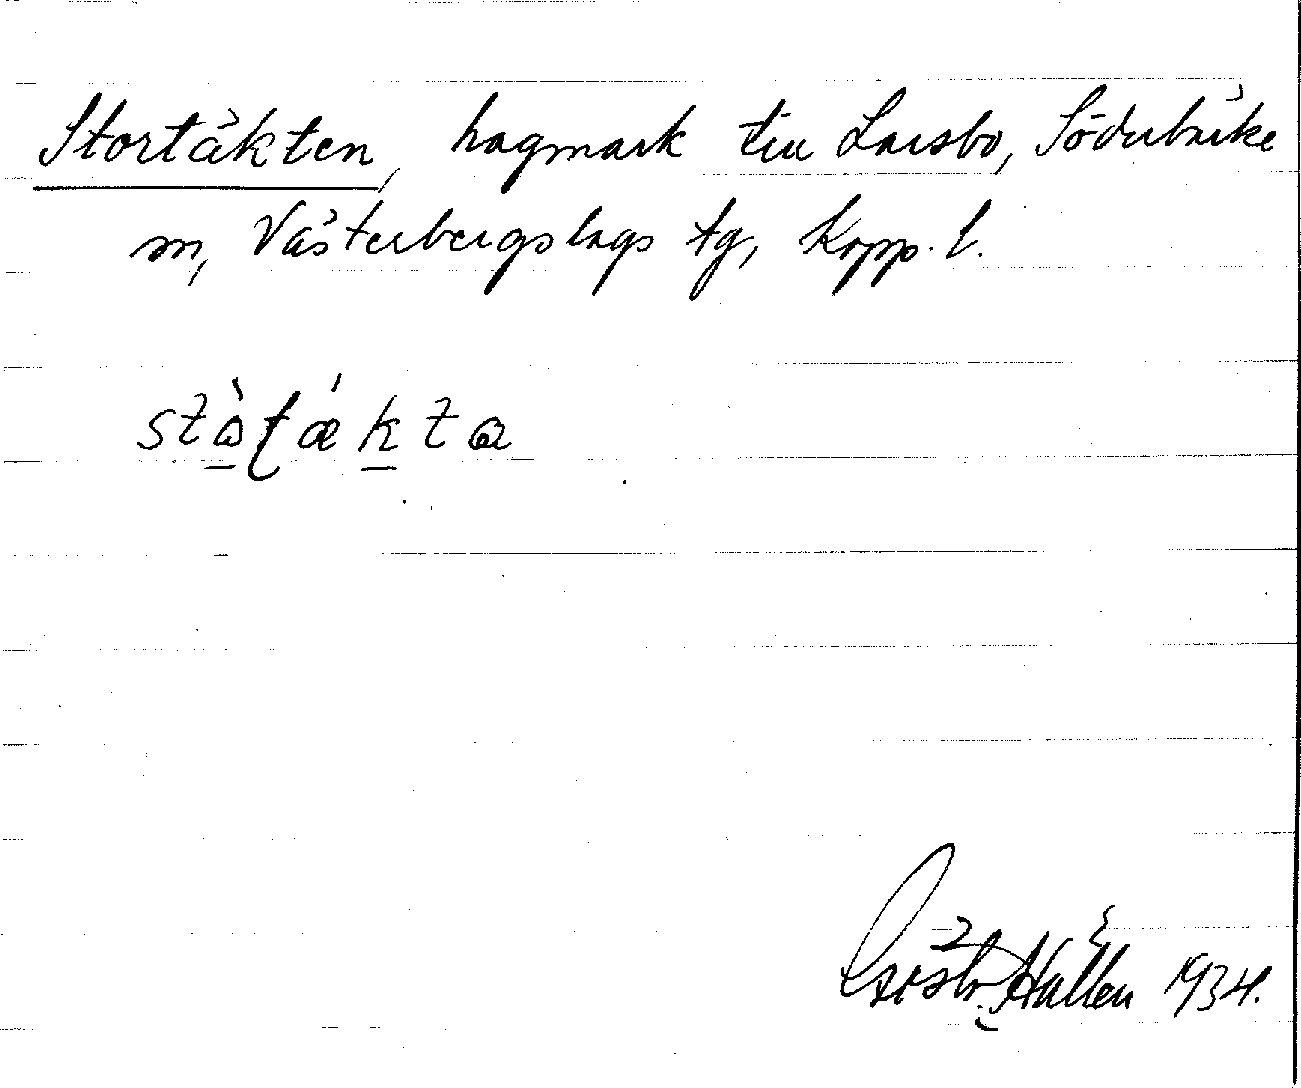 Stortäkten, hagmark till Larsbo, Söderbärke
sn, Västerbergslags tg, Kopp. l.
stò̱ʈǽḵta
Gösta Hallén 1934.